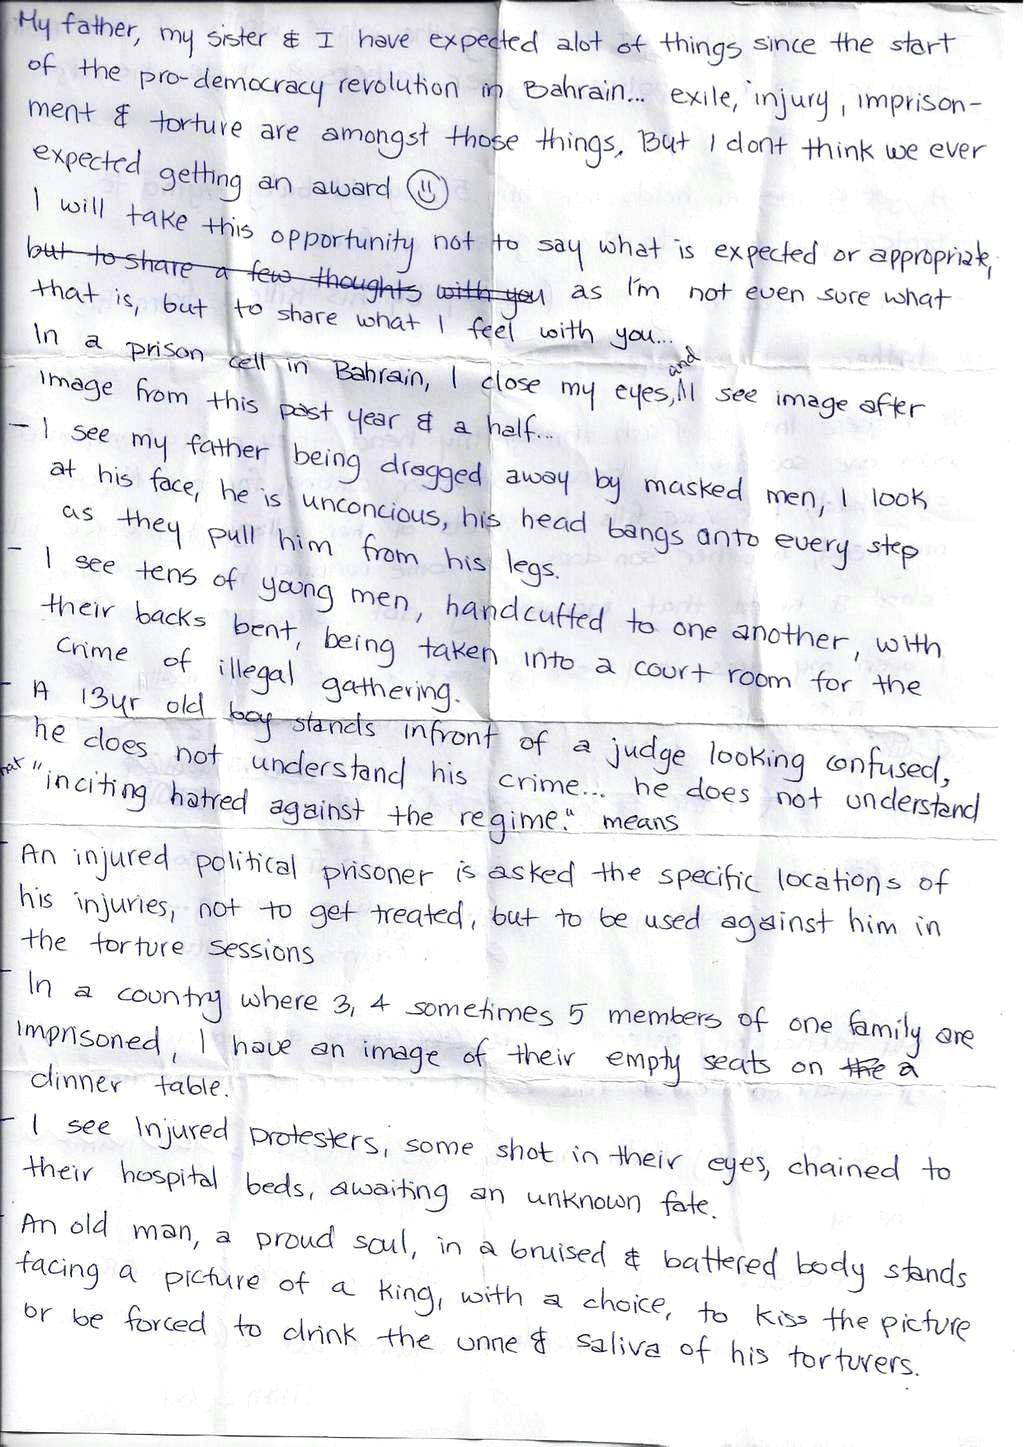 My father, my sister & I have expected alot of things since the start
of the pro-democracy revolution in Bahrain... exile, injury, imprison-
ment & torture are amongst those things. But I dont think we ever
expected getting an award ☺
I will take this opportunity not to say what is expected or appropriate,
but to share a few thoughts with you as I'm not even sure what
that is, but to share what I feel with you...
In a prison cell in Bahrain, I close my eyes, and I see image after
image from this past year & a half...
- I see my father being dragged away by masked men, I look
at his face, he is unconcious, his head bangs onto every step
as they pull him from his legs.
- I see tens of young men, handcuffed to one another, with
their backs bent, being taken into a court room for the
crime of illegal gathering.
- A 13yr old boy stands infront of a judge looking confused,
he does not understand his crime... he does not understand
"inciting hatred against the regime." means
- An injured political prisoner is asked the specific locations of
his injuries, not to get treated, but to be used against him in
the torture sessions
- In a country where 3, 4 sometimes 5 members of one family are
imprisoned, I have an image of their empty seats on the a
dinner table.
- I see Injured protesters, some shot in their eyes, chained to
their hospital beds, awaiting an unknown fate.
- An old man, a proud soul, in a bruised & battered body stands
facing a picture of a king, with a choice, to kiss the picture
or be forced to drink the urine & saliva of his torturers.